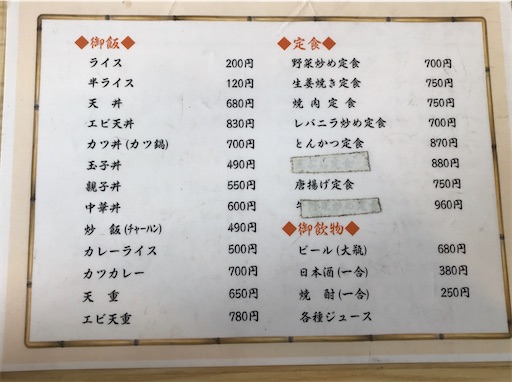 ◆御飯◆
ライス 200円
半ライス 120円
天丼 680円
エビ天丼 830円
カツ丼(カツ鍋) 700円
玉子丼 490円
親子丼 550円
中華丼 600円
炒飯(チャーハン) 490円
カレーライス 500円
カツカレー 700円
天重 650円
エビ天重 780円
◆定食◆
野菜炒め定食 700円
生姜焼き定食 750円
焼肉定食 750円
レバニラ炒め定食 700円
とんかつ定食 870円
880円
唐揚げ定食 750円
960円
◆御飲物◆
ビール(大瓶) 680円
日本酒(一合) 380円
焼酎(一合) 250円
各種ジュース